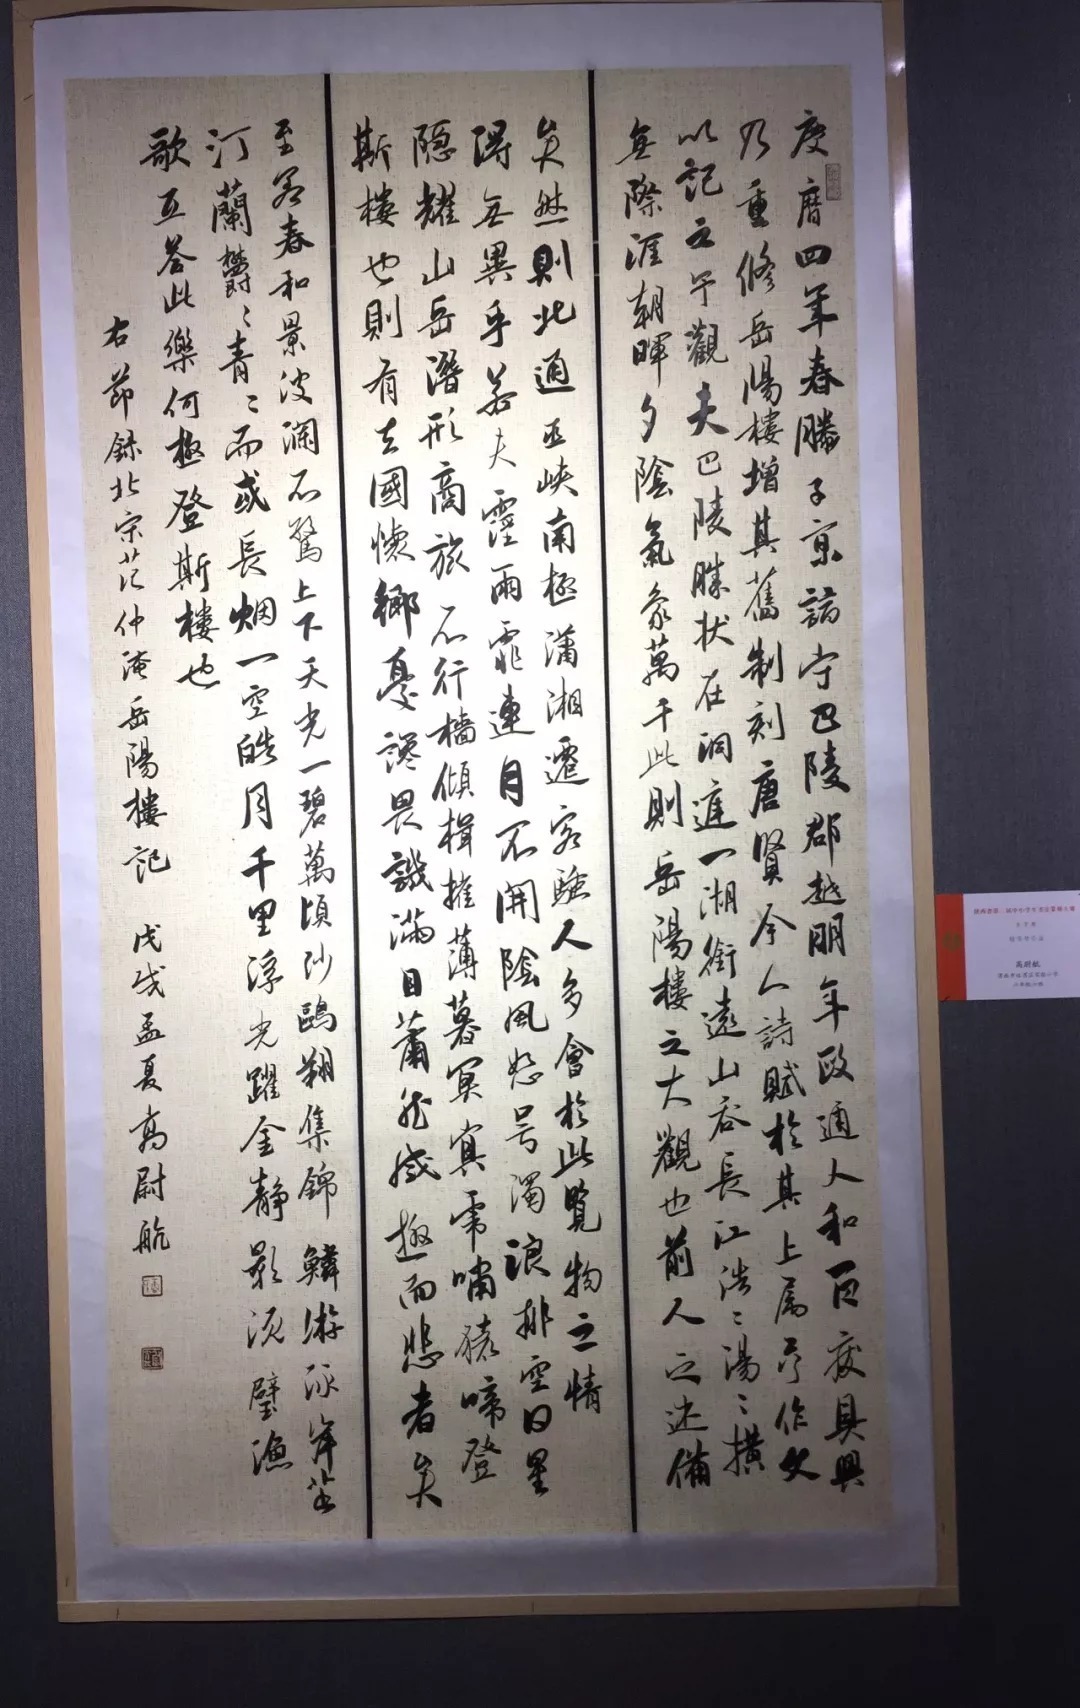 慶曆四年春滕子京謫守巴陵郡越明年政通人和百废具興
乃重修岳陽樓增其舊制刻唐賢今人詩賦於其上属予作文
以記之予觀夫巴陵勝状在洞庭一湖銜遠山吞長江浩〻湯〻横
無際涯朝暉夕陰氣象萬千此則岳陽樓之大觀也前人之述備
矣然則北通巫峽南極瀟湘遷客騷人多會於此覽物之情
得無異乎若夫霪雨霏連月不開陰風怒号濁浪排空日星
隐耀山岳潛形商旅不行檣傾楫摧薄暮冥冥虎嘯猿啼登
斯樓也則有去國懷鄉憂讒畏譏滿目蕭然感極而悲者矣
至若春和景波瀾不驚上下天光一碧萬頃沙鷗翔集錦鱗游泳岸芷
汀蘭鬱〻青〻而或長烟一空皓月千里浮光躍金静影沉璧漁
歌互答此樂何極登斯樓也
右節録北宋范仲淹岳陽樓記 戊戌孟夏高尉航
高尉航